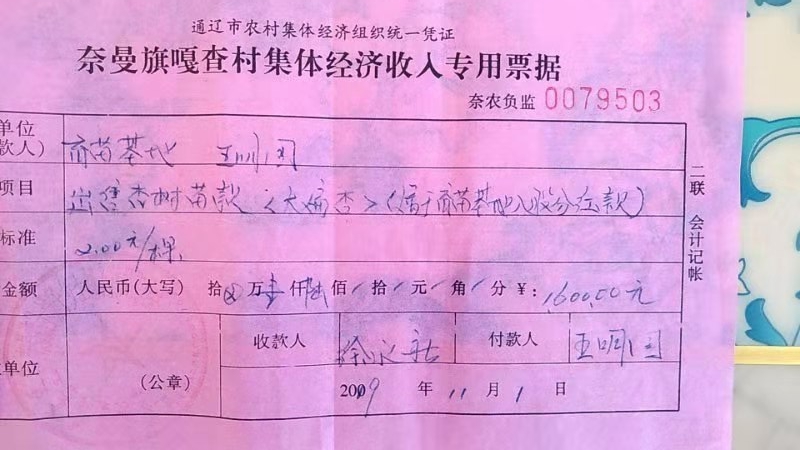 通辽市农村集体经济组织统一凭证
奈曼旗嘎查村集体经济收入专用票据
奈农负监 0079503
单位
款人) 育苗基地 王明国
项目 出售杏树苗款〈大扁杏〉(属于育苗基地入股分红款)
标准 2.00元/棵
金额 人民币(大写) 拾 万壹仟陆佰 拾 元 角 分 ¥: 1600.00元
单位 (公章) 收款人 徐 付款人 王明国
2009 年 11 月 1 日
二联 会计记帐